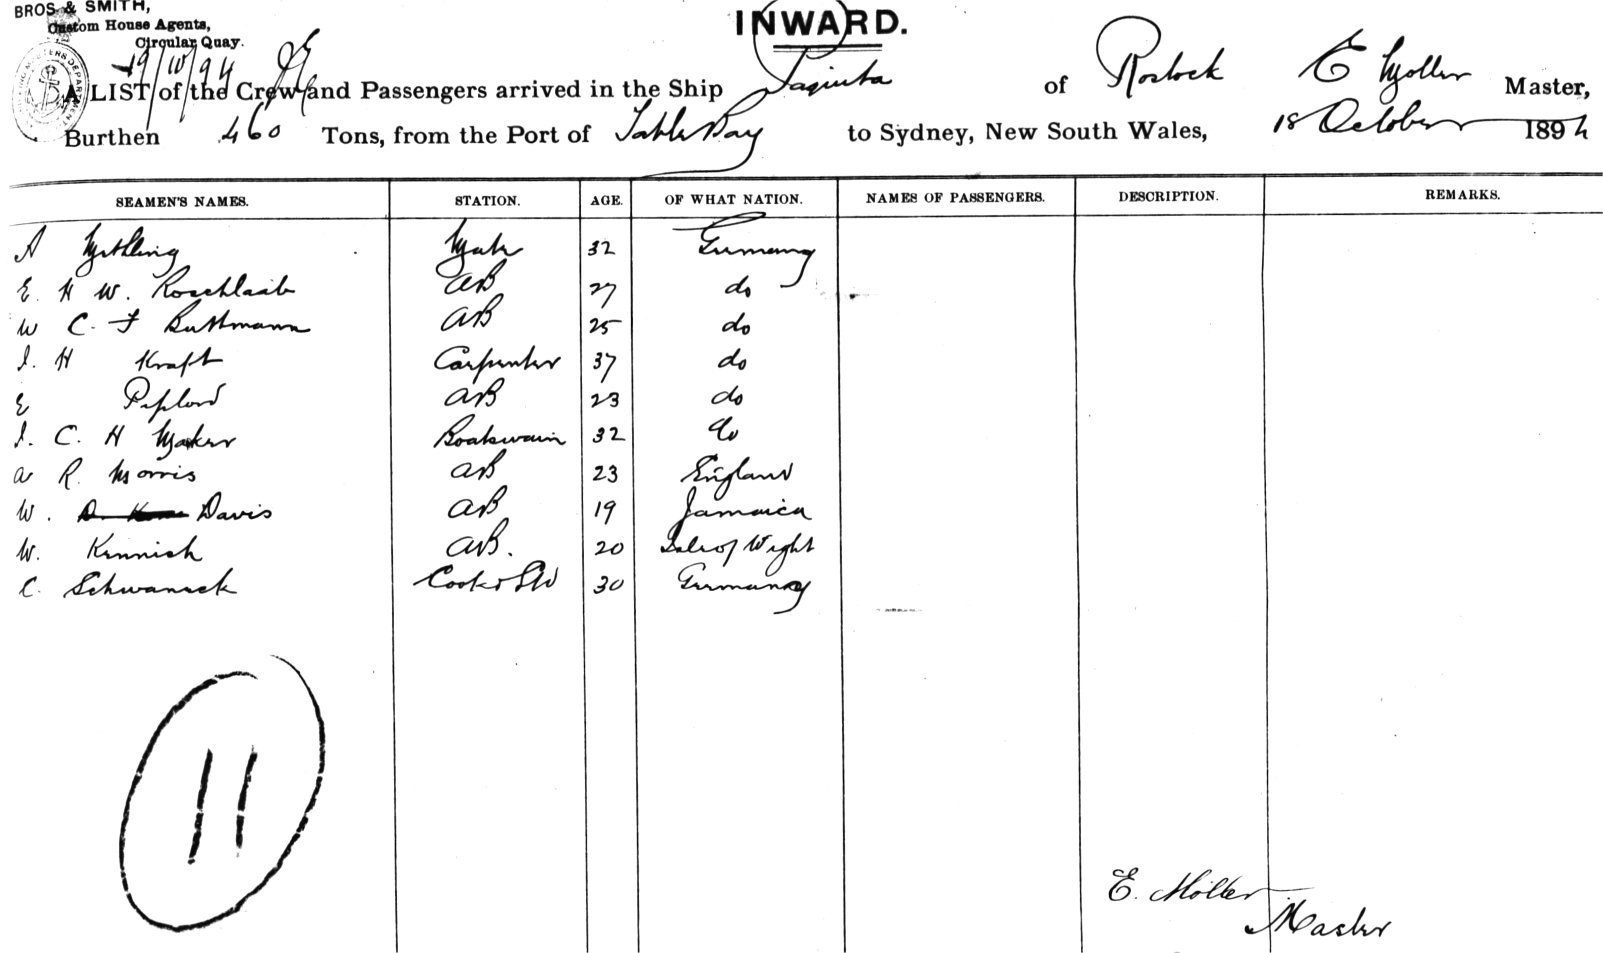 BROS & SMITH,
Custom House Agents,
Circular Quay.
INWARD.
19/10/94
A LIST of the Crew and Passengers arrived in the Ship of Rostock E Moller Master,
Burthen 460 Tons, from the Port of Table Bay to Sydney, New South Wales, 18 October 1894
SEAMEN'S NAMES. STATION. AGE. OF WHAT NATION. NAMES OF PASSENGERS. DESCRIPTION. REMARKS.
A Mate 32 Germany
E. H W. Roschlaub AB 27 do
W C. F Buthmann AB 25 do
I. H Kraft Carpenter 37 do
E AB 23 do
I. C. H Boatswain 32 do
A R. Morris AB 23 England
W. Davis AB 19 Jamaica
W. Kinnish AB. 20 Isle of Wight
C. Schwaneck Cook & Std 30 Germany
11
E. Möller
Master